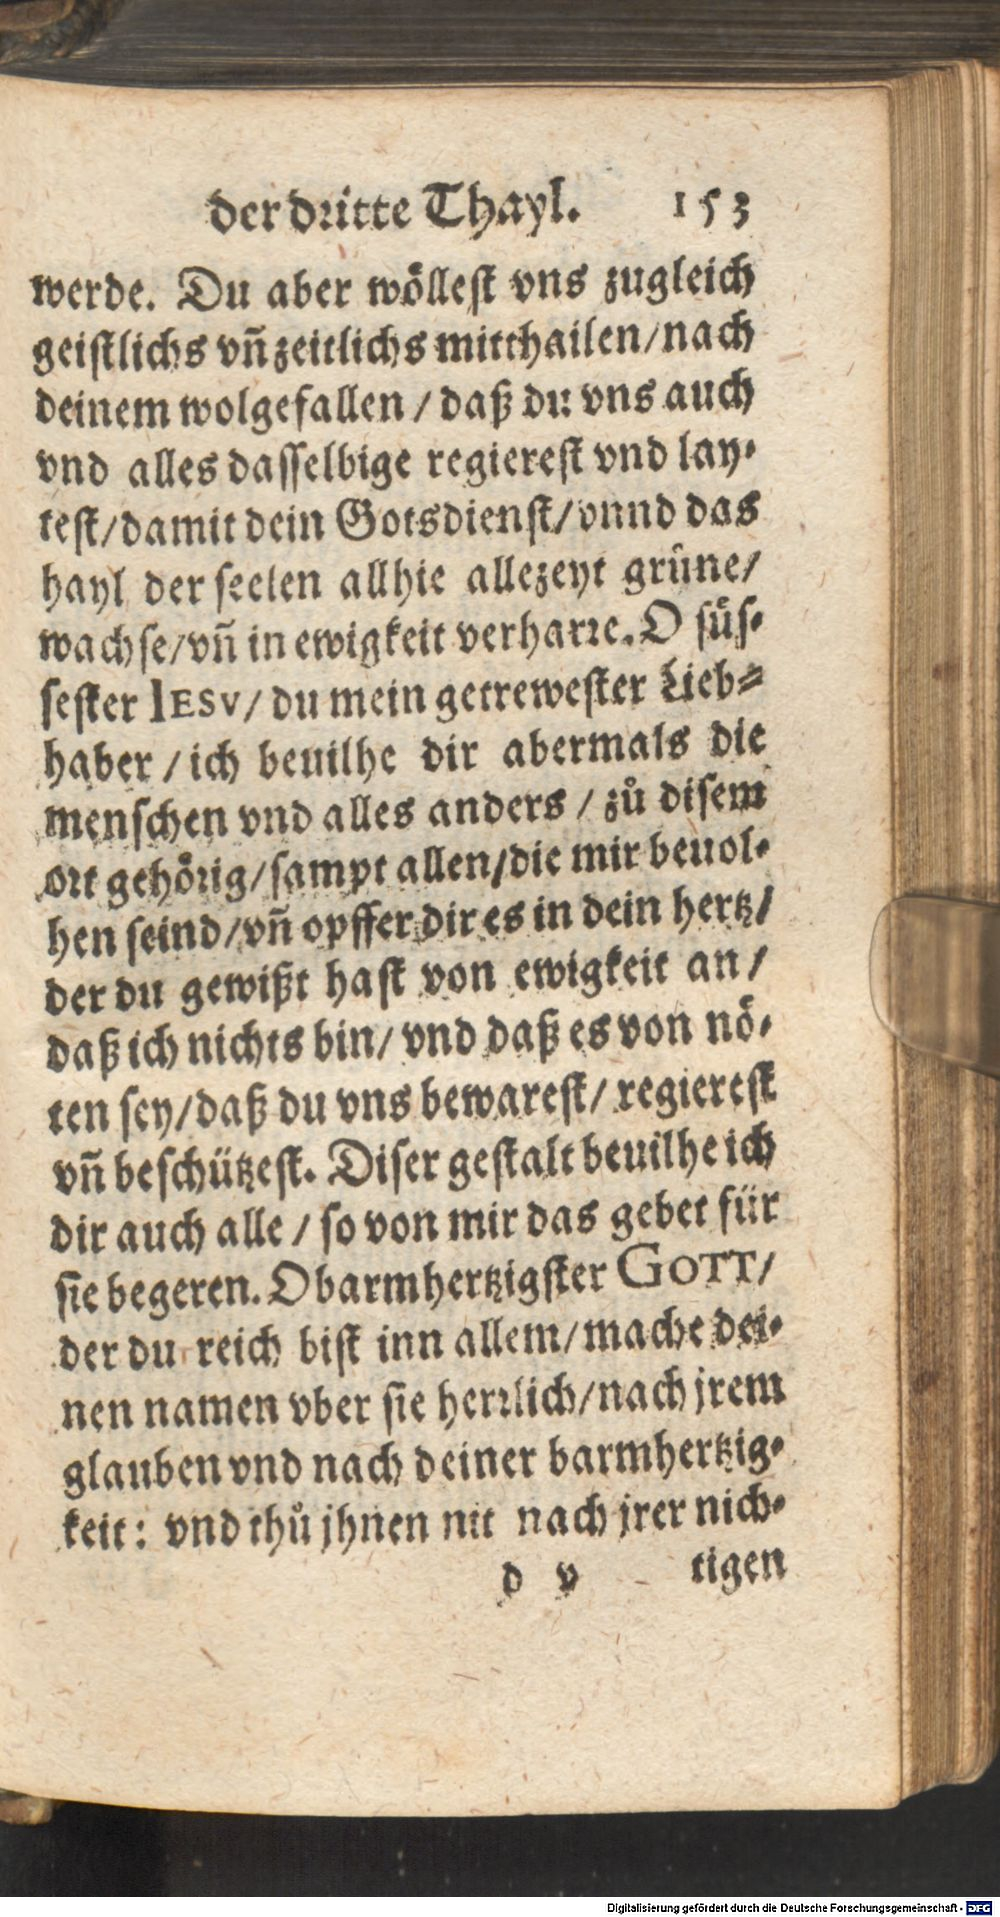 der dritte Thayl. 153
werde. Du aber wöllest vns zugleich
geistlichs vñ zeitlichs mitthailen/nach
deinem wolgefallen / daß du vns auch
vnd alles dasselbige regierest vnd lay-
test/damit dein Gotsdienst/vnnd das
hayl der seelen allhie allezeyt grüne/
wachse/vñ in ewigkeit verharre. O süs-
sester IESV/ du mein getrewester Lieb-
haber / ich beuilhe dir abermals die
menschen vnd alles anders / zů disem
ort gehörig/sampt allen/die mir beuol-
hen seind/vñ opffer dir es in dein hertz/
der du gewißt hast von ewigkeit an/
daß ich nichts bin/ vnd daß es von nö-
ten sey/daß du vns bewarest/ regierest
vñ beschützest. Diser gestalt beuilhe ich
dir auch alle / so von mir das gebet für
sie begeren. O barmhertzigster GOTT/
der du reich bist inn allem/mache dei-
nen namen vber sie herrlich/nach jrem
glauben vnd nach deiner barmhertzig-
keit: vnd thů jhnen nit nach jrer nich-
d v tigen
Digitalisierung gefördert durch die Deutsche Forschungsgemeinschaft - DFG